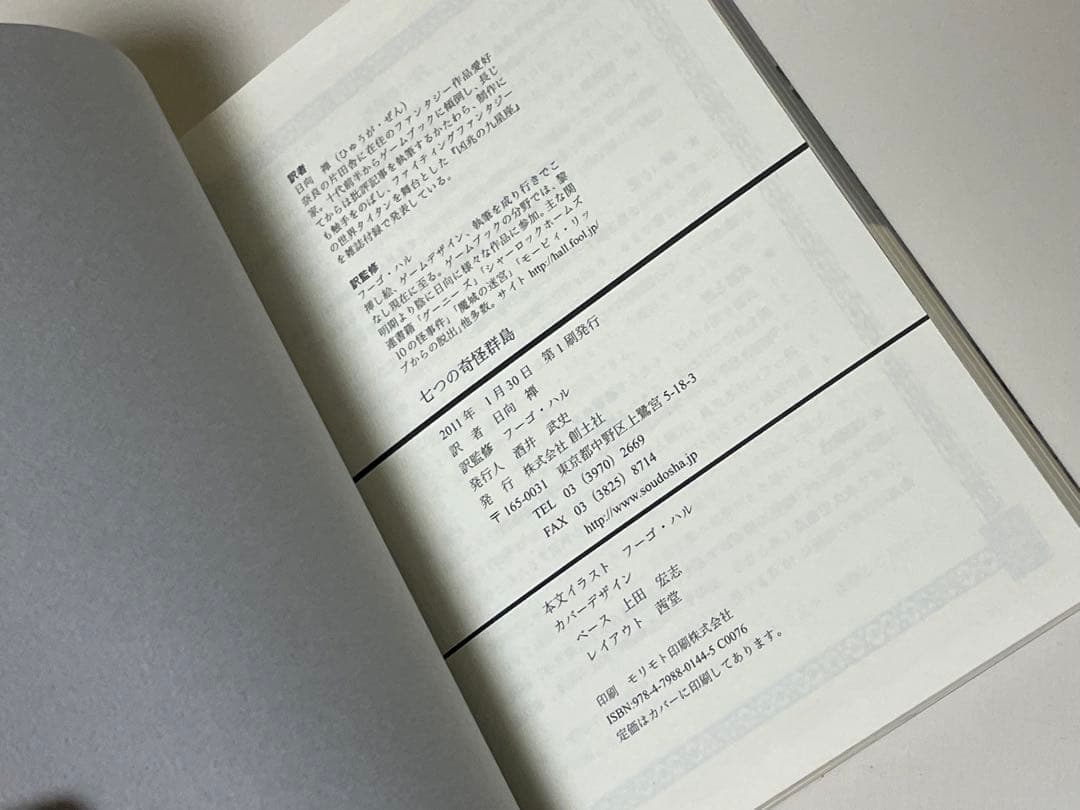 訳者
日向 禅(ひゅうが・ぜん)
奈良の片田舎に在住のファンタジー作品愛好
家。十代前半からゲームブックに傾倒し、長じ
てからは批評記事を執筆するかたわら、制作に
も触手をのばし、ファイティングファンタジー
の世界タイタンを舞台とした『凶兆の九星座』
を雑誌付録で発表している。
訳監修
フーゴ・ハル
挿し絵、ゲームデザイン、執筆を成り行きでこ
なし現在に至る。ゲームブックの分野では、黎
明期より陰に日向に様々な作品に参加。主な関
連書籍「グーニーズ」「シャーロックホームズ
10の怪事件」「魔城の迷宮」「モービィ・リッ
プからの脱出」他多数。サイト http://hall.fool.jp/
七つの奇怪群島
2011年 1月30日 第1刷発行
訳 者 日向 禅
訳監修 フーゴ・ハル
発行人 酒井 武史
発 行 株式会社 創土社
〒165-0031 東京都中野区上鷺宮 5-18-3
TEL 03 (3970) 2669
FAX 03 (3825) 8714
http://www.soudosha.jp
本文イラスト フーゴ・ハル
カバーデザイン
ベース 上田 宏志
レイアウト 茜堂
印刷 モリモト印刷株式会社
ISBN:978-4-7988-0144-5 C0076
定価はカバーに印刷してあります。